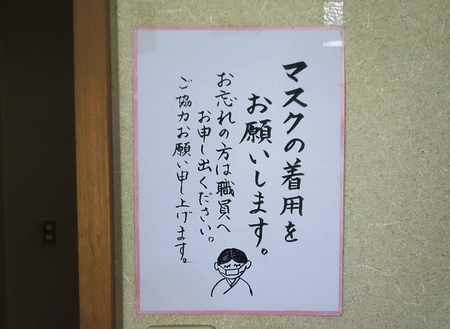 マスクの着用を
お願いします。
お忘れの方は職員へ
お申し出ください。
ご協力お願い申し上げます。